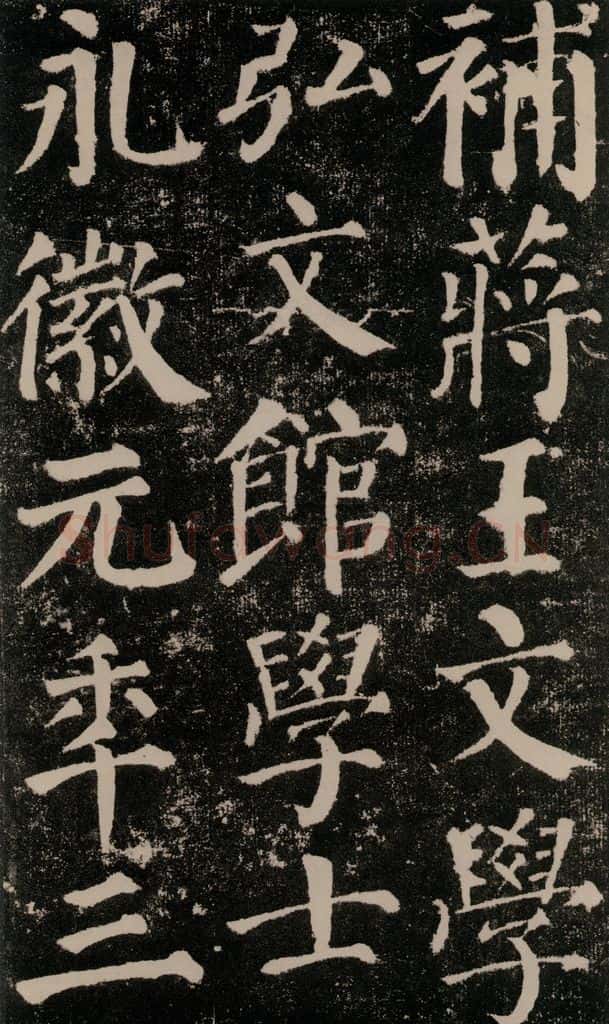 補蔣王文學
弘文館學士
永徽元年三
Shufawang.CN